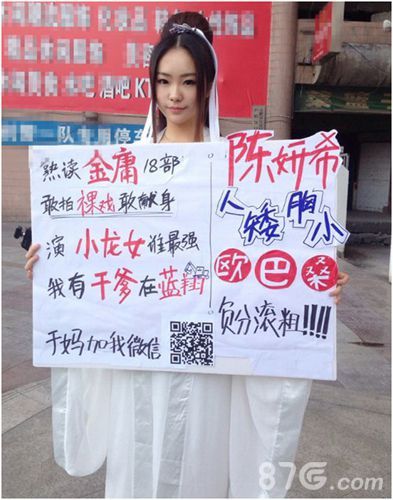 熟读金庸18部
敢拍裸戏敢献身
演小龙女谁最强
我有干爹在蓝翔
于妈加我微信
陈妍希
人矮胸小
欧巴桑
负分滚粗!!!!
酒吧 KT
队
停车
87G.com